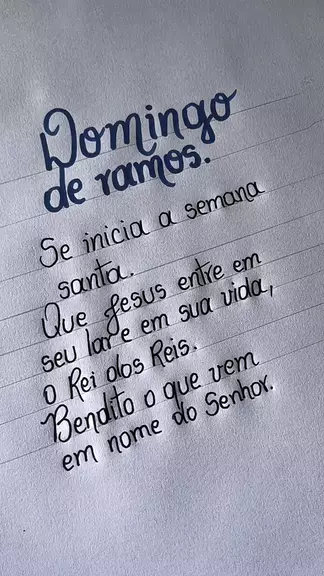 Domingo
de ramos.
Se inicia a semana
santa.
Que Jesus entre em
seu lar e em sua vida,
o Rei dos Reis.
Bendito o que vem
em nome do Senhor.